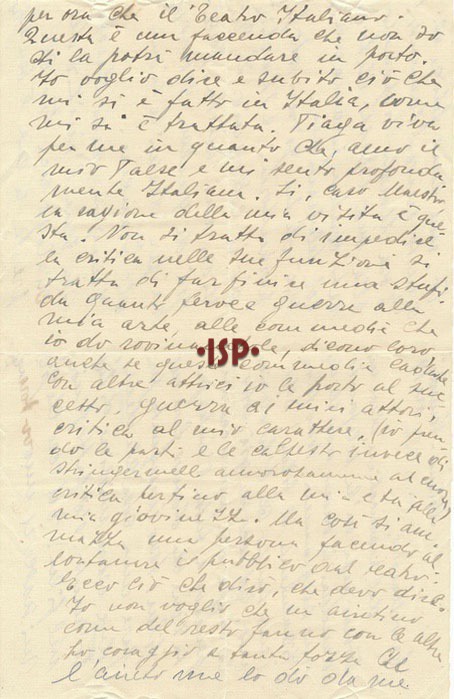 per ora che il Teatro Italiano.
Questa è una faccenda che non so
si la potrà mandare in porto.
Io voglio dire e subito ciò che
mi si è fatto in Italia, come
mi si è trattata. Piaga viva
per me in quanto che, amo il
mio Paese e mi sento profonda
mente Italiana. Sì, caro Maestro,
la ragione della mia visita è que
sta. Non si tratta di impedire
la critica nelle sue funzioni si
tratta di far finire una stupi
da quanto feroce guerra alla
mia arte, alle commedie che
io do rovinandole, dicono loro,
anche se questa commedia
con altre attrici io la porto al suc
cesso, guerra ai miei attori,
critica al mio carattere, (io pren
do le parti e le calpesto invece di
stringermele amorosamente al cuore)
critica perfino alla mia età, alla
mia giovinezza. Ma così si am
mazza una persona facendo al
lontanare il pubblico dal teatro.
Ecco ciò che dirò, che devo dire.
Io non voglio che mi aiutino
come del resto fanno con le altre
ho coraggio e tanta forza che
l'aiuto me lo do da me.
ISP